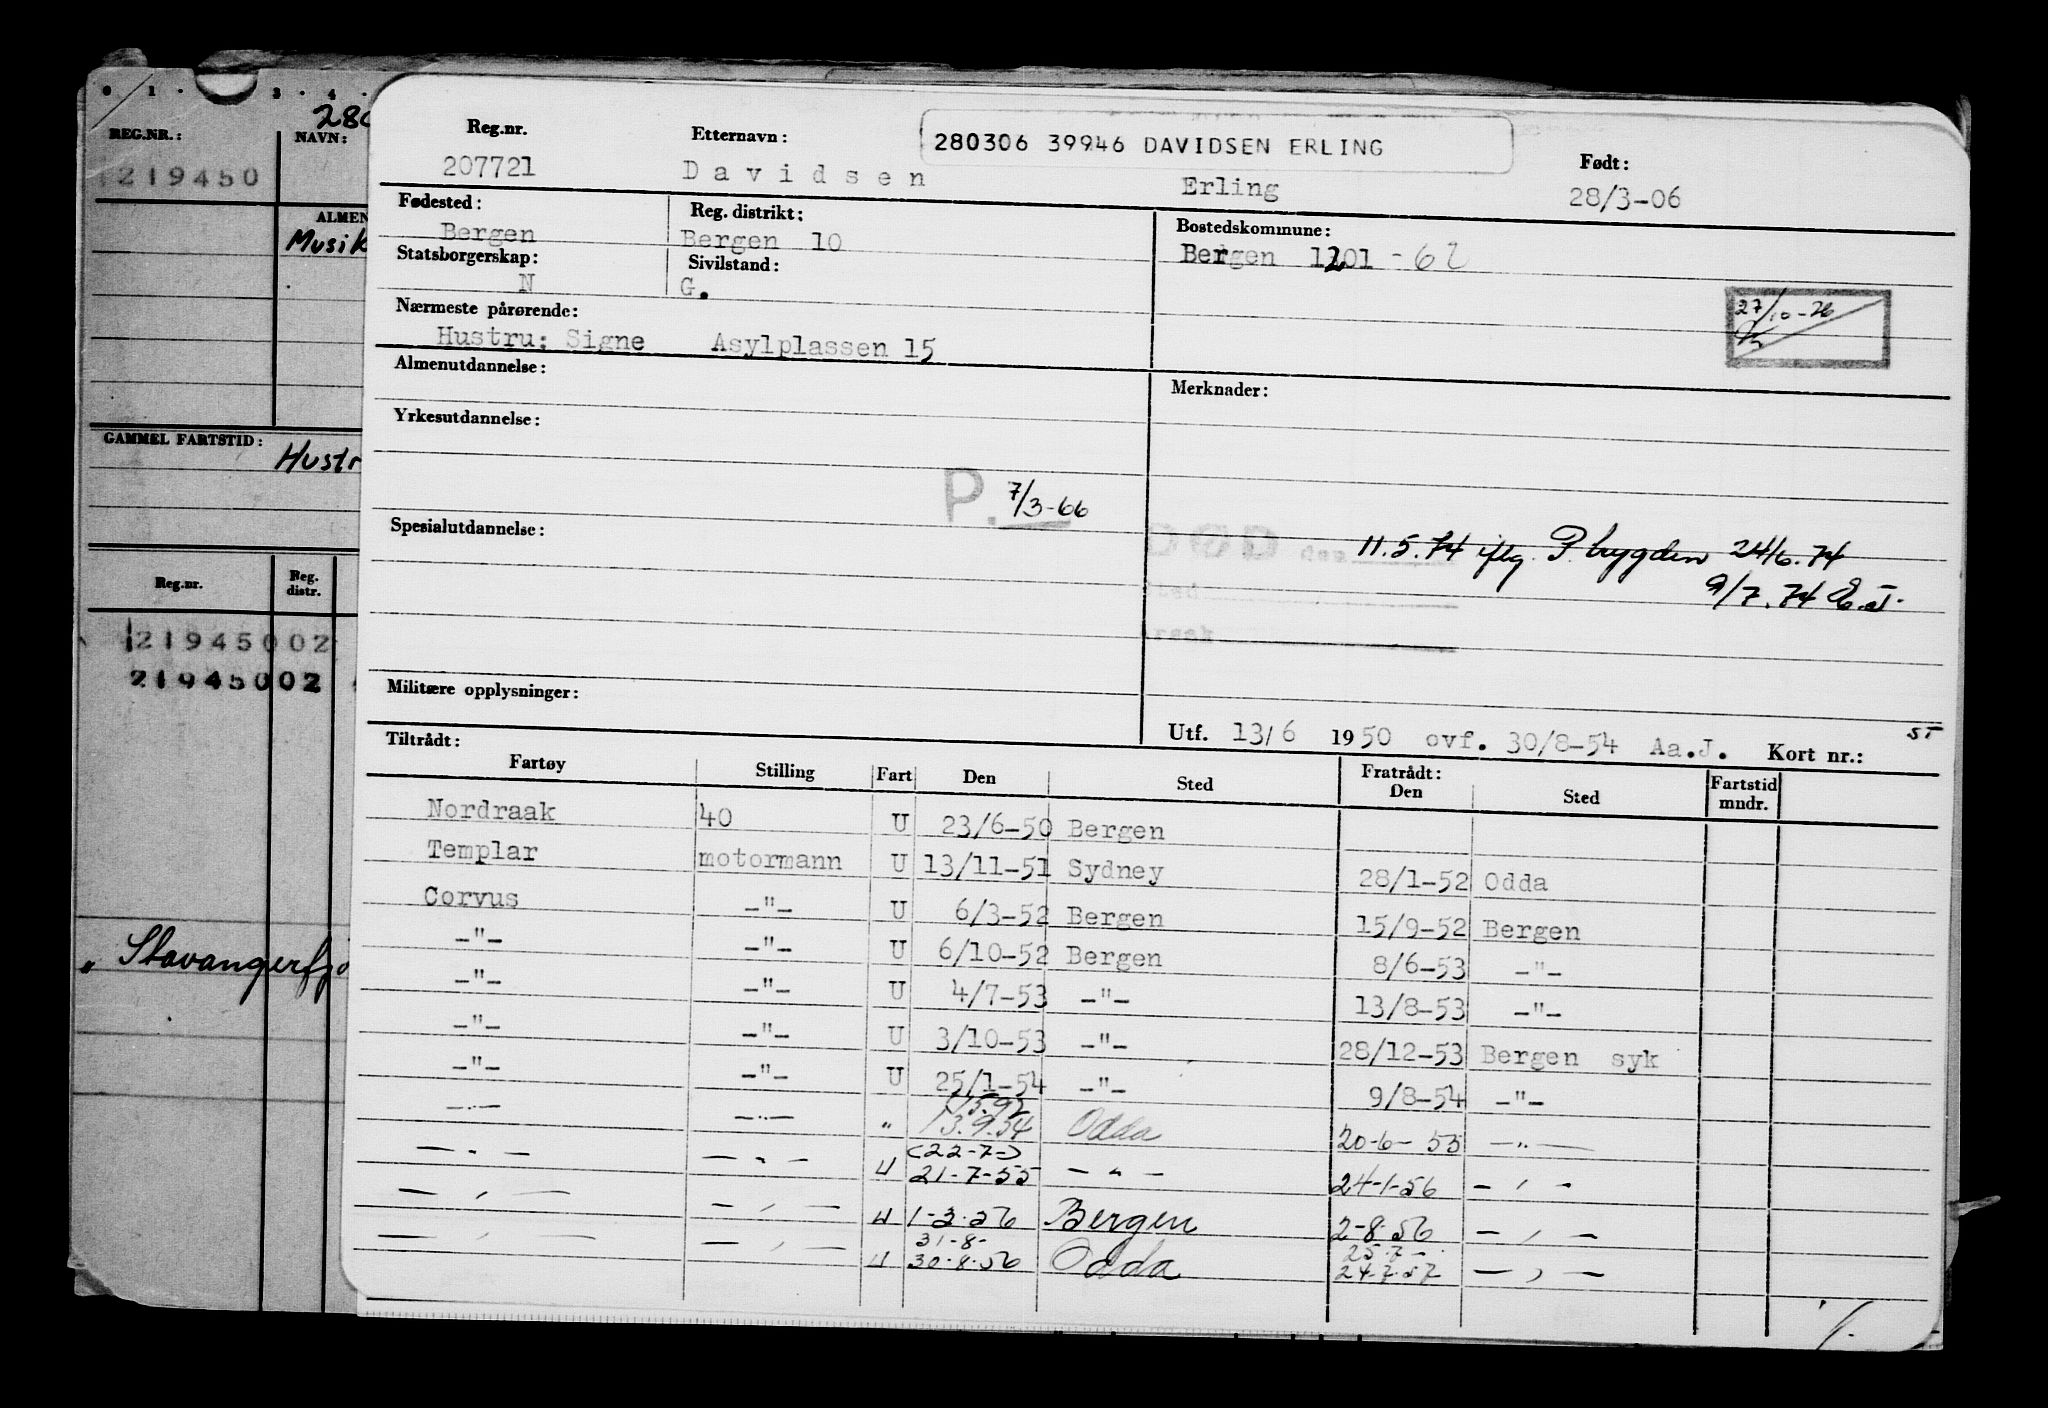 0 1 · 3 · 4 ·
280
REG.NR.: NAVN:
219450
ALMEN
Musik
GAMMEL FARTSTID:
Hustr
Reg.nr. Reg. distr.
21945002
21945002
„ Stavangerfjo
Reg.nr. Etternavn: 280306 39946 DAVIDSEN ERLING Født:
207721 Davidsen Erling 28/3-06
Fødested: Reg. distrikt: Bostedskommune:
Bergen Bergen 10 Bergen 1201 - 62
Statsborgerskap: Sivilstand:
N G.
27/10-76
Nærmeste pårørende:
Hustru: Signe Asylplassen 15
Almenutdannelse: Merknader:
Yrkesutdannelse:
P. 7/3-66
Spesialutdannelse: DØD den 11.5.74 iflg. P. bygden 24/6.74
Sted 9/7.74 E.J.
Årsak
Militære opplysninger:
Utf. 13/6 1950 ovf. 30/8-54 Aa.J. Kort nr.: ST
Tiltrådt: Fratrådt:
Fartøy Stilling Fart Den Sted Den Sted Fartstid mndr.
Nordraak 40 U 23/6-50 Bergen
Templar motormann U 13/11-51 Sydney 28/1-52 Odda
Corvus -"- U 6/3-52 Bergen 15/9-52 Bergen
-"- -"- U 6/10-52 Bergen 8/6-53 -"-
-"- -"- U 4/7-53 -"- 13/8-53 -"-
-"- -"- U 3/10-53 -"- 28/12-53 Bergen syk
-"- -"- U 25/1-54 -"- 9/8-54 -"-
-"- -"- " 13.9.54 Odda 20-6-55 -"-
(22-7-)
-"- -"- U 21-7-55 -"- 24-1-56 -"-
-"- -"- U 1-3-56 Bergen 2-8-56 -"-
31-8- 25-7-
-"- -"- U 30-8-56 Odda 24-7-57 -"-